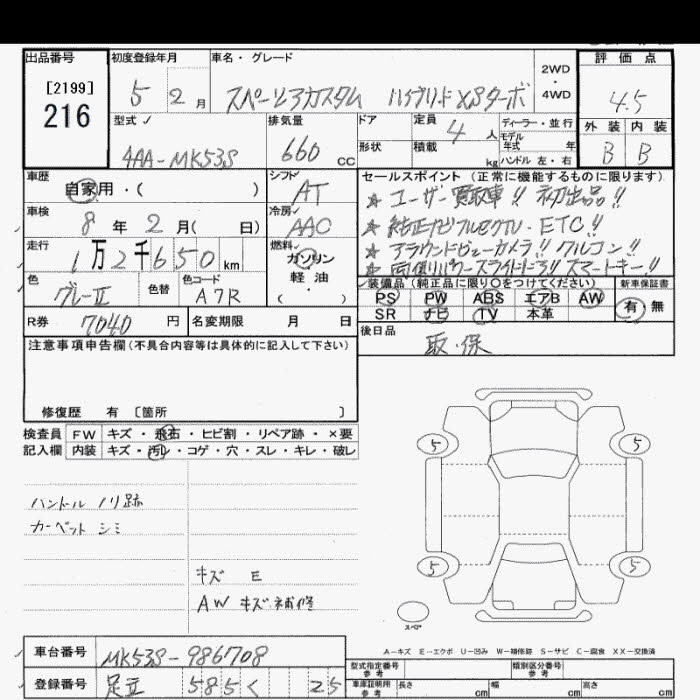 出品番号 初度登録年月 車名・グレード 評価点
[2199]
216
5 2月 スペーシアカスタム ハイブリッドXSターボ 2WD・4WD 4.5
型式 排気量 ドア 定員 4人 ディーラー・並行 外装 内装
4AA-MK53S 660 CC 形状 積載 kg モデル年式 年 ハンドル 左・右 B B
車歴 自家用・( ) シフト AT
車検 8年2月( 日) 冷房 AAC
走行 1万2千650km 燃料 ガソリン・軽油 ( )
色 グレーII 色替 色コード A7R
R券 7040円 名変期限 月 日
セールスポイント (正常に機能するものに限ります)
★ ユーザー買取車!! 初出品!!
★ 純正ナビフルセグTV・ETC!!
★ アラウンドビューカメラ!! クルコン!!
★ 両側パワースライドドア!! スマートキー!!
装備品(純正品に限り○をつけてください) 新車保証書
PS PW ABS エアB AW 有・無
SR ナビ TV 本革
後日品
取・保
注意事項申告欄(不具合内容等は具体的に記入して下さい)
修復歴 有 〔箇所 〕
検査員記入欄 FW キズ・飛石・ヒビ割・リペア跡・×要
内装 キズ・汚レ・コゲ・穴・スレ・キレ・破レ
ハンドル ノリ跡
カーペット シミ
キズ E
AW キズ補修
5 5
5 5
スペア
A-キズ E-エクボ U-凹み W-補修跡 S-サビ C-腐食 XX-交換済
車台番号 MK53S-986708
登録番号 足立 585 く 25
型式指定番号 参考 類別区分番号 参考
車庫証明用 参考 長さ cm 幅 cm 高さ cm